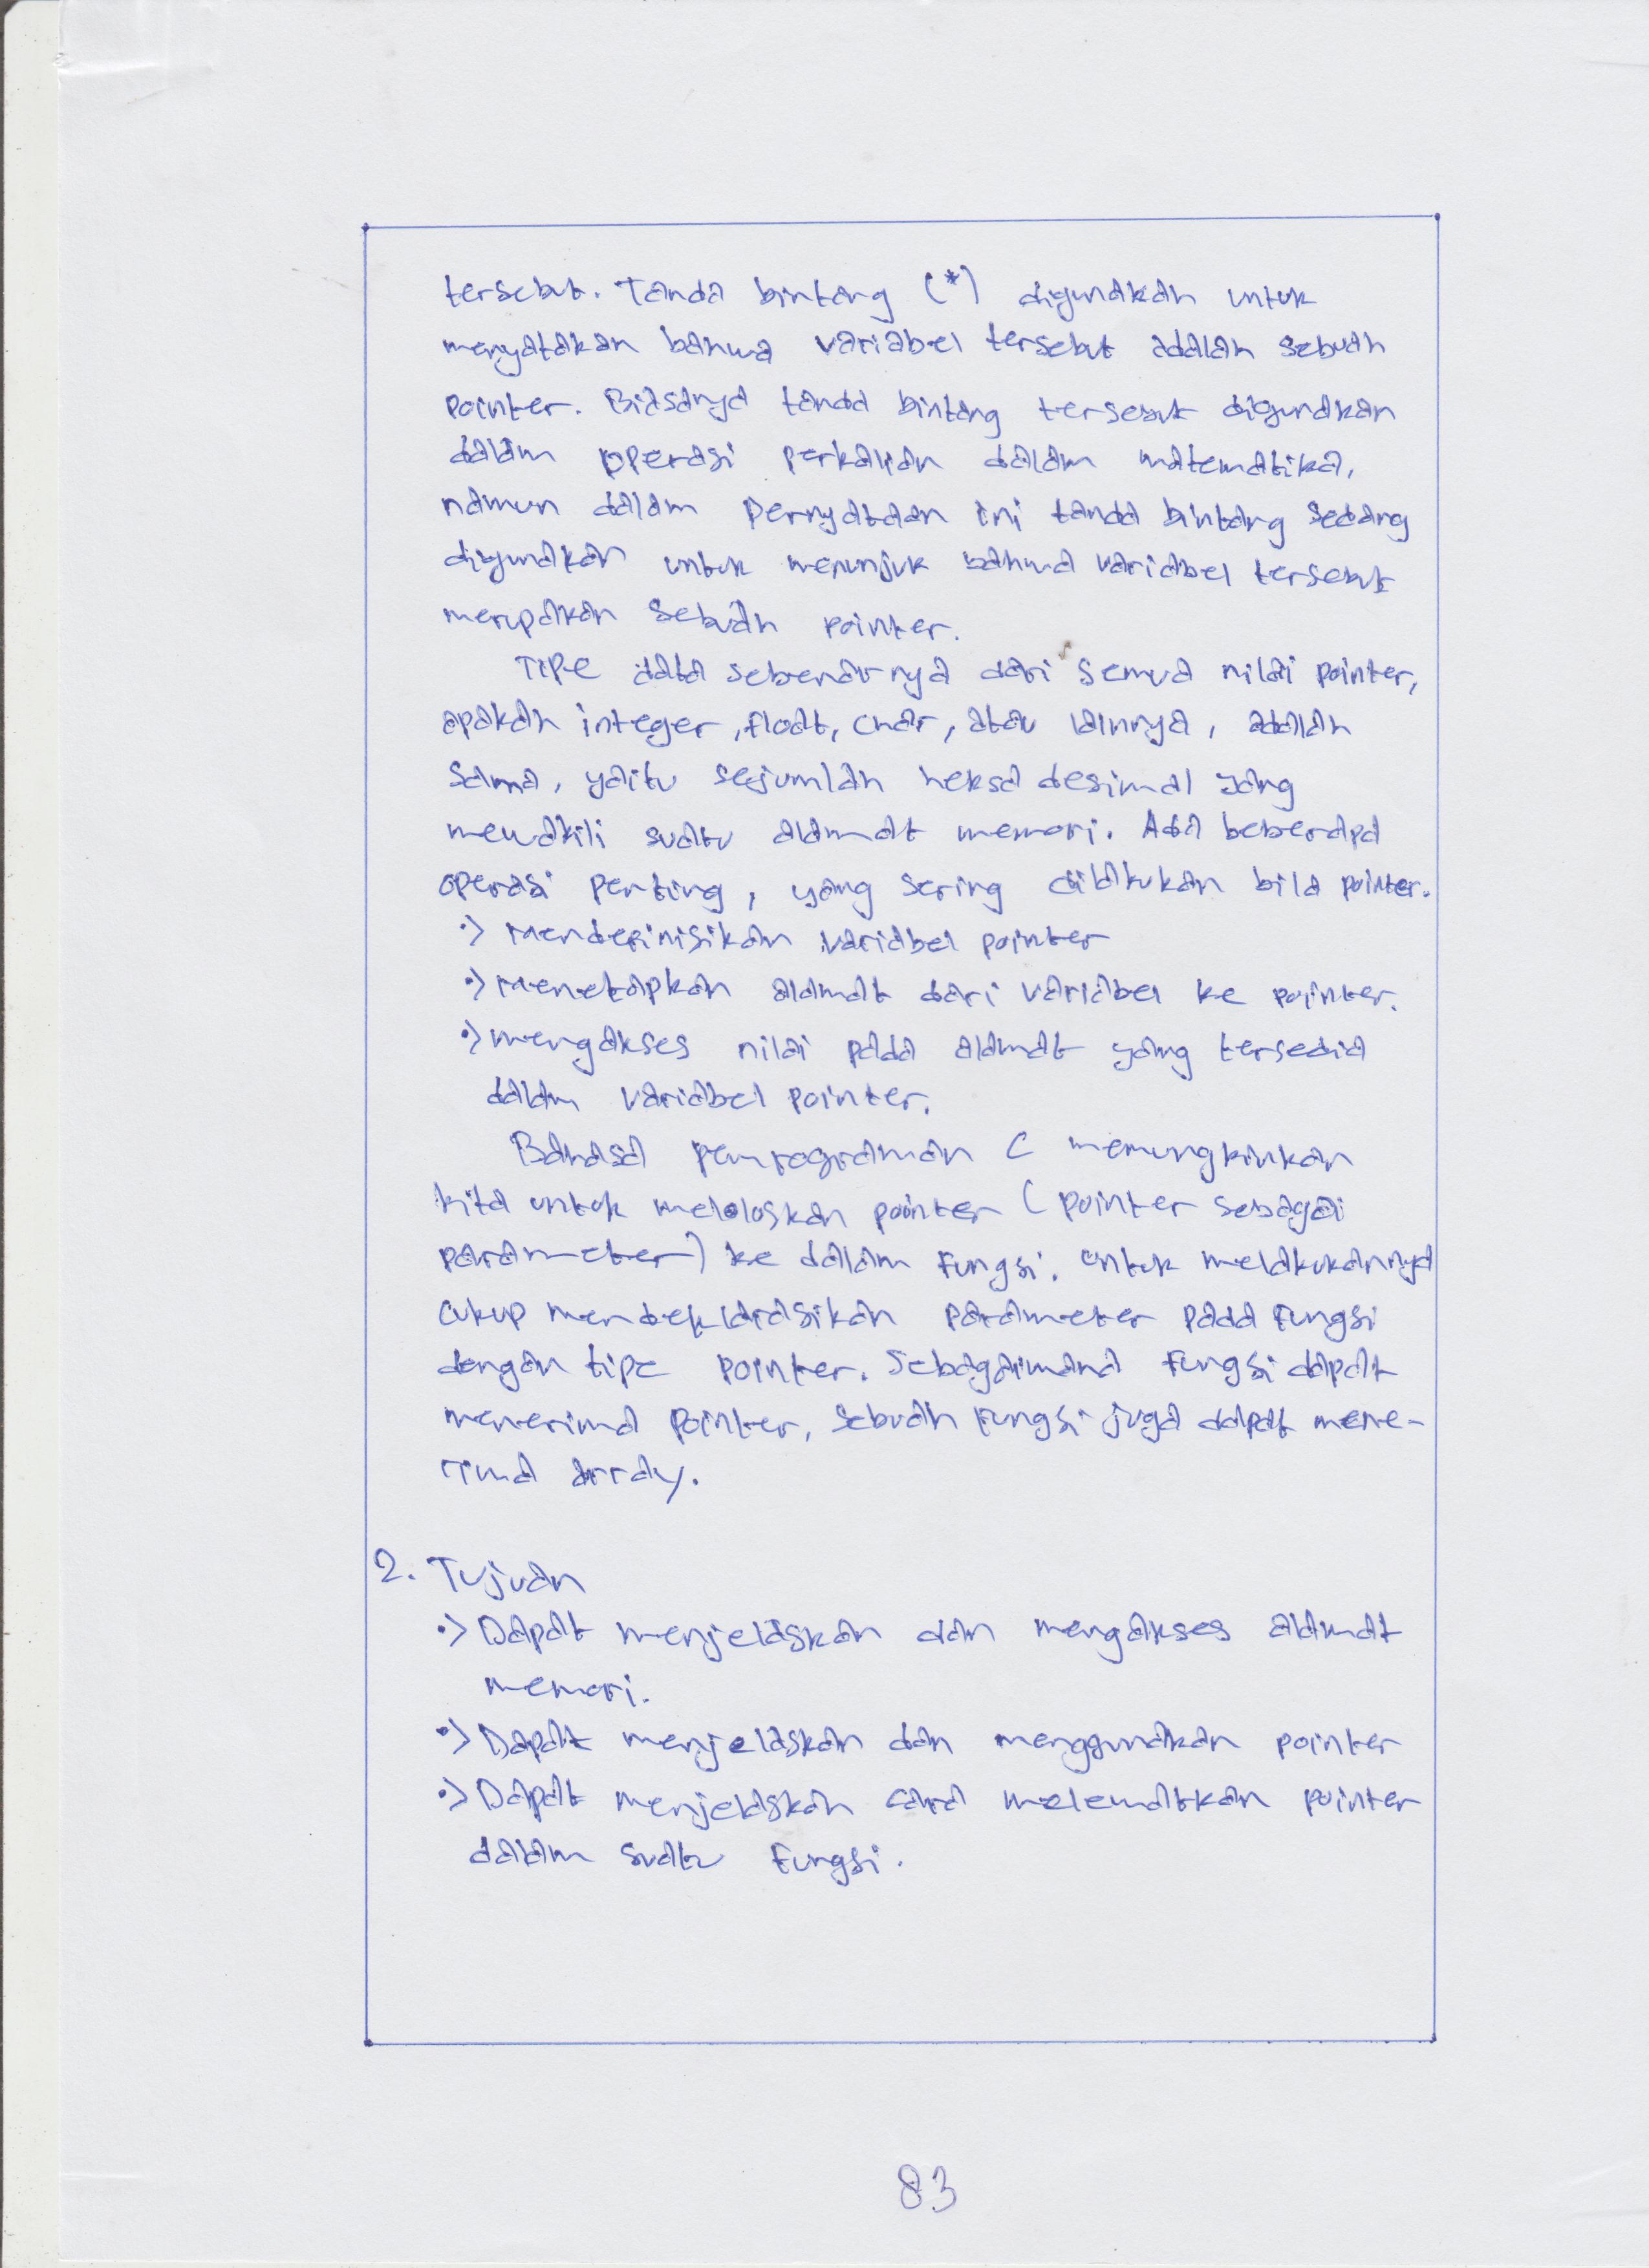 tersebut. Tanda bintang (*) digunakan untuk
menyatakan bahwa variabel tersebut adalah sebuah
pointer. Biasanya tanda bintang tersebut digunakan
dalam operasi perkalian dalam matematika,
namun dalam pernyataan ini tanda bintang sedang
digunakan untuk menunjuk bahwa variabel tersebut
merupakan sebuah pointer.
Tipe data sebenarnya dari semua nilai pointer,
apakah integer, float, char, atau lainnya, adalah
sama, yaitu sejumlah heksa desimal yang
mewakili suatu alamat memori. Ada beberapa
operasi penting, yang sering dilakukan bila pointer.
•> Mendefinisikan variabel pointer
•> Menetapkan alamat dari variabel ke pointer.
•> mengakses nilai pada alamat yang tersedia
dalam variabel pointer.
Bahasa pemrograman C memungkinkan
kita untuk meloloskan pointer (pointer sebagai
parameter) ke dalam fungsi. Untuk melakukannya
cukup mendeklarasikan parameter pada fungsi
dengan tipe pointer. Sebagaimana fungsi dapat
menerima pointer, sebuah fungsi juga dapat mene-
rima array.
2. Tujuan
•> Dapat menjelaskan dan mengakses alamat
memori.
•> Dapat menjelaskan dan menggunakan pointer
•> Dapat menjelaskan cara melewatkan pointer
dalam suatu fungsi.
83